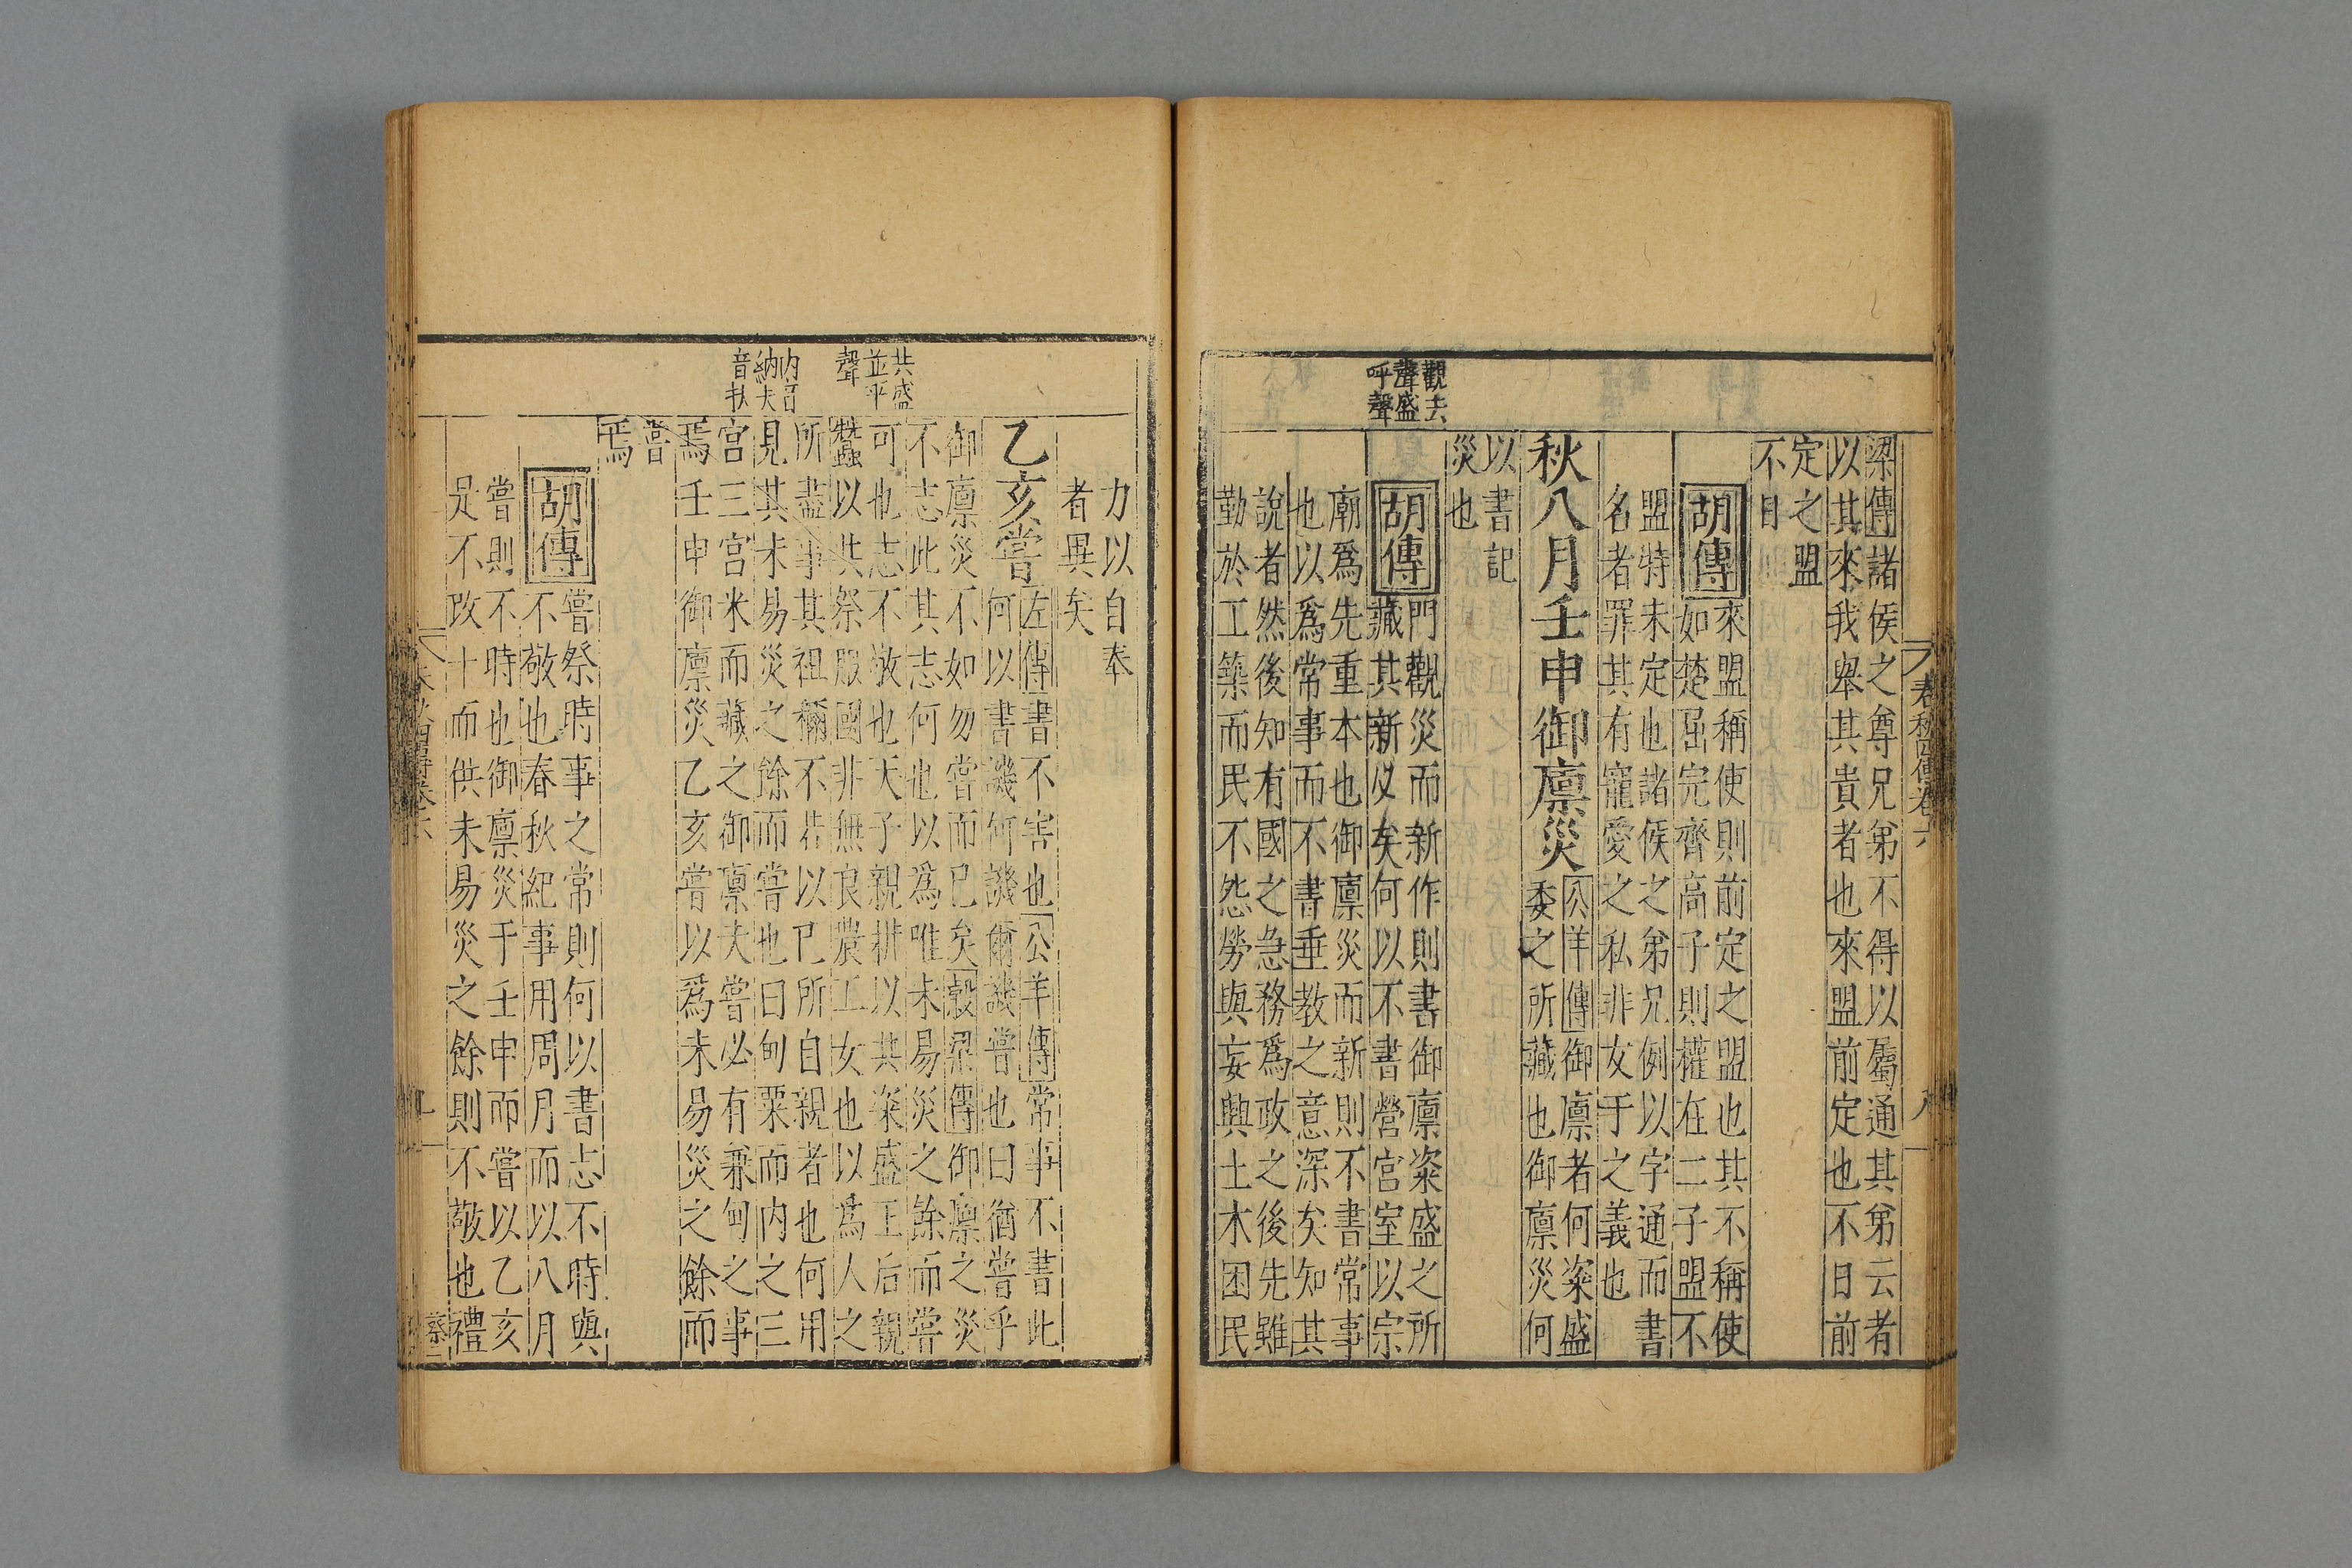 梁傳諸侯之尊兄弟不得以屬通其弟云者
以其來我舉其貴者也來盟前定也不日前
定之盟
不日
胡傳
來盟稱使則前定之盟也其不稱使
如楚屈完齊高子則權在二子盟不
盟特未定也諸侯之弟兄例以字通而書
名者罪其有寵愛之私非友于之義也
秋八月壬申御廩災
公羊傳御廩者何粢盛
委之所藏也御廩災何
以書記
災也
觀去
聲盛
呼聲
胡傳
門觀災而新作則書御廩粢盛之所
藏其新必矣何以不書營宮室以宗
廟爲先重本也御廩災而新則不書常事
也以爲常事而不書垂教之意深矣知其
說者然後知有國之急務爲政之後先雖
勤於工築而民不怨勞與妄興土木困民
力以自奉
者異矣
乙亥嘗
左傳書不害也公羊傳常事不書此
何以書譏何譏爾譏嘗也曰猶嘗乎
御廩災不如勿嘗而已矣穀梁傳御廩之災
不志此其志何也以爲唯未易災之餘而嘗
共盛
並平
聲
可也志不敬也天子親耕以共粢盛王后親
蠶以共祭服國非無良農工女也以爲人之
所盡事其祖禰不若以已所自親者也何用
見其未易災之餘而嘗也曰甸粟而內之三
內音
納夫
音扶
宮三宮米而藏之御廩夫嘗必有兼甸之事
焉壬申御廩災乙亥嘗以爲未易災之餘而
嘗
焉
胡傳
嘗祭時事之常則何以書志不時與
不敬也春秋紀事用周月而以八月
嘗則不時也御廩災于壬申而嘗以乙亥
是不改卜而供未易災之餘則不敬也禮
春秋四傳卷六
八